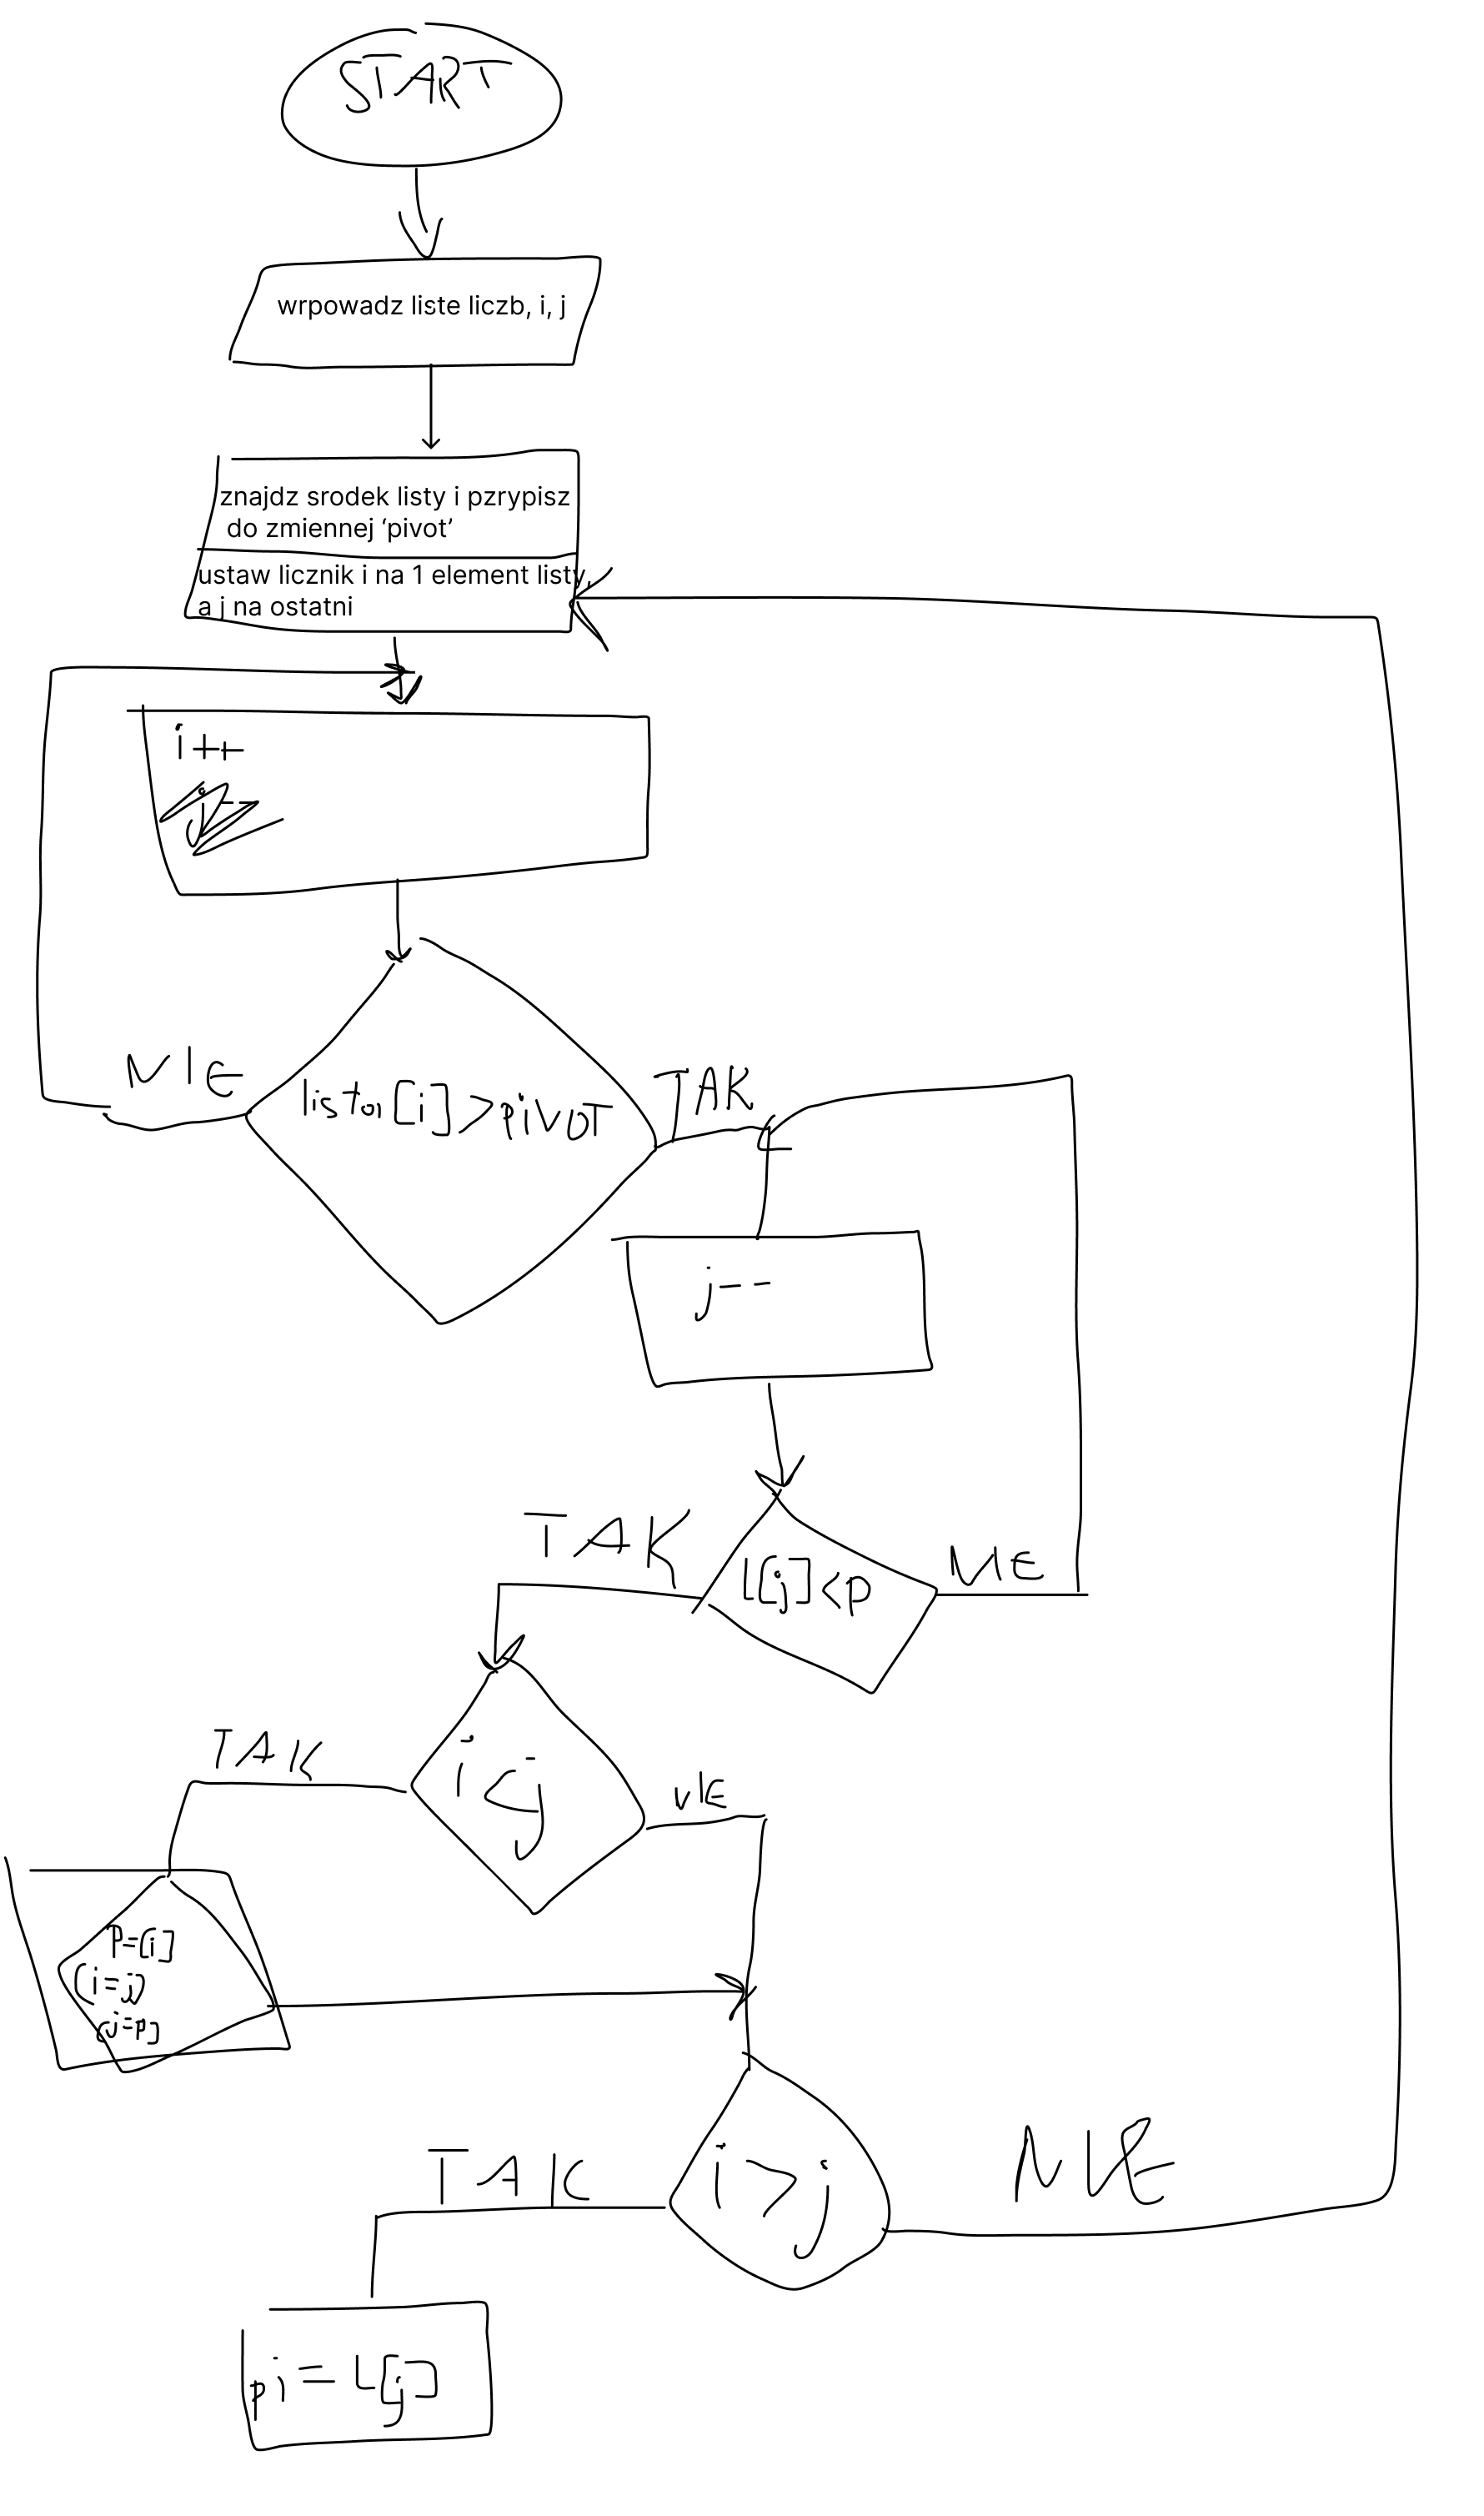 START
wrpowadz liste liczb, i, j
znajdz srodek listy i pzrypisz
do zmiennej ‘pivot’
ustaw licznik i na 1 element listy,
a j na ostatni
i++
NIE
lista[i]>pivot
TAK
j--
TAK
l[j]<p
NIE
TAK
i<j
NIE
p=[i]
[i=j]
[j=p]
TAK
i>j
NIE
pi=l[j]